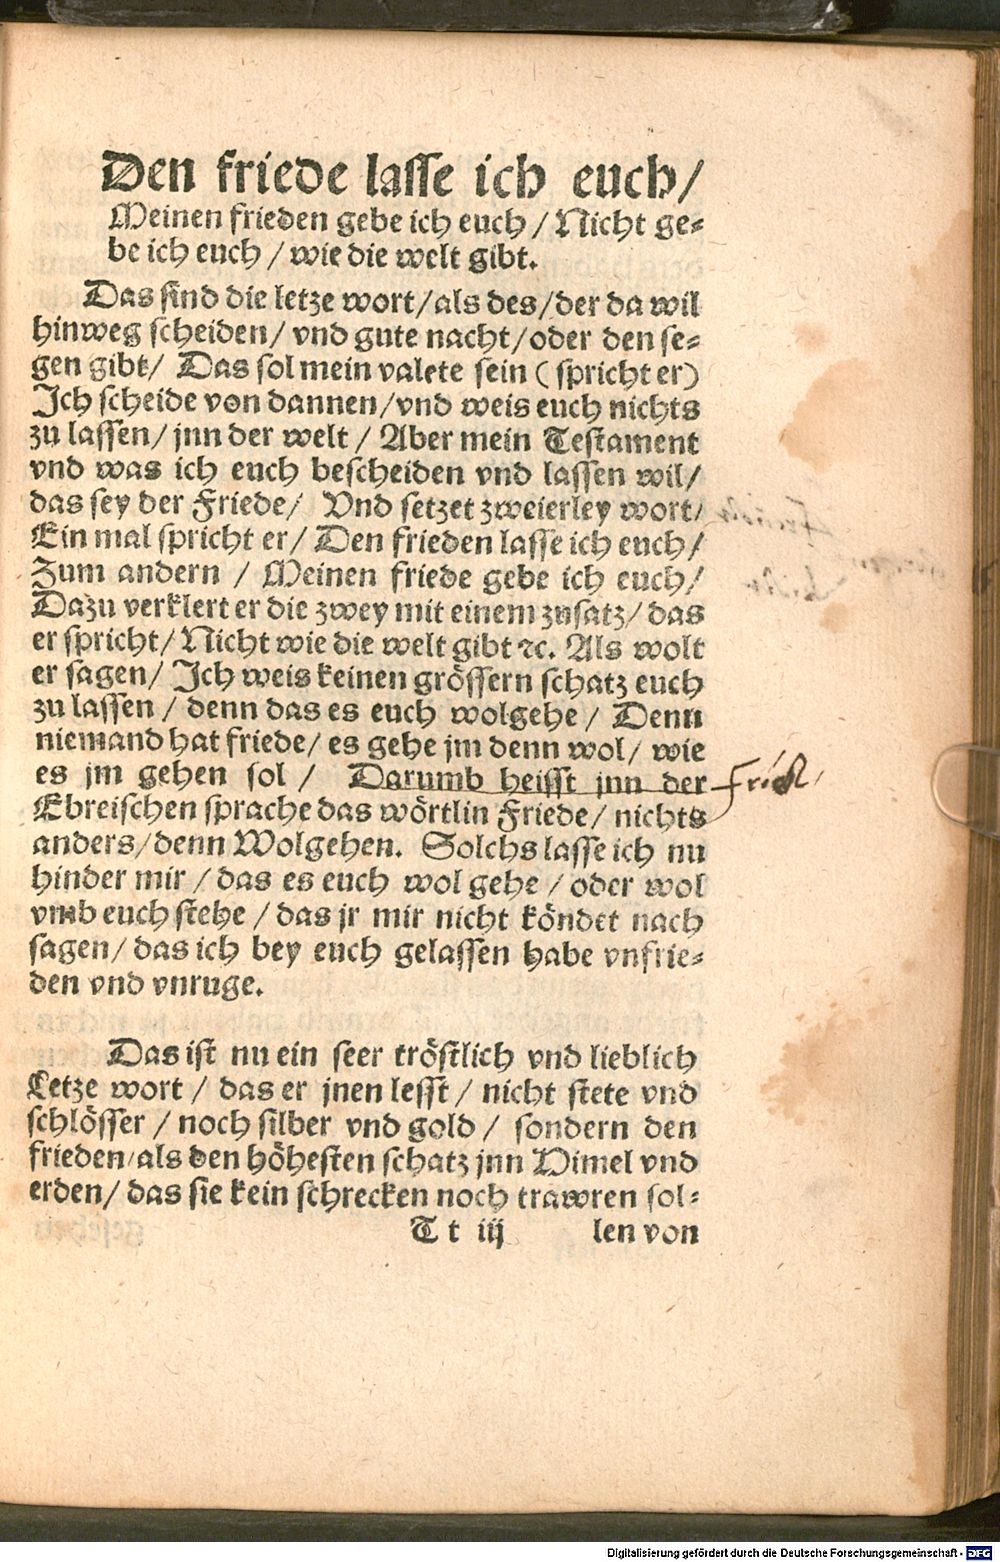 Den friede lasse ich euch/
Meinen frieden gebe ich euch / Nicht ge-
be ich euch / wie die welt gibt.
Das sind die letze wort/als des/der da wil
hinweg scheiden/ vnd gute nacht/oder den se-
gen gibt/ Das sol mein valete sein ( spricht er)
Ich scheide von dannen/vnd weis euch nichts
zu lassen/ jnn der welt / Aber mein Testament
vnd was ich euch bescheiden vnd lassen wil/
das sey der Friede/ Vnd setzet zweierley wort/
Ein mal spricht er/ Den frieden lasse ich euch/
Zum andern / Meinen friede gebe ich euch/
Dazu verklert er die zwey mit einem zusatz/ das
er spricht/ Nicht wie die welt gibt ⁊c. Als wolt
er sagen/ Ich weis keinen grössern schatz euch
zu lassen / denn das es euch wolgehe / Denn
niemand hat friede/ es gehe jm denn wol/ wie
es jm gehen sol / Darumb heisst jnn der
Ebreischen sprache das wörtlin Friede/ nichts
anders/denn Wolgehen. Solchs lasse ich nu
hinder mir / das es euch wol gehe / oder wol
vmb euch stehe / das jr mir nicht köndet nach
sagen/ das ich bey euch gelassen habe vnfrie-
den vnd vnruge.
Das ist nu ein seer tröstlich vnd lieblich
Letze wort / das er jnen lesst / nicht stete vnd
schlösser / noch silber vnd gold / sondern den
frieden/als den höhesten schatz jnn Himel vnd
erden/ das sie kein schrecken noch trawren sol-
T t iij len von
Digitalisierung gefördert durch die Deutsche Forschungsgemeinschaft - DFG